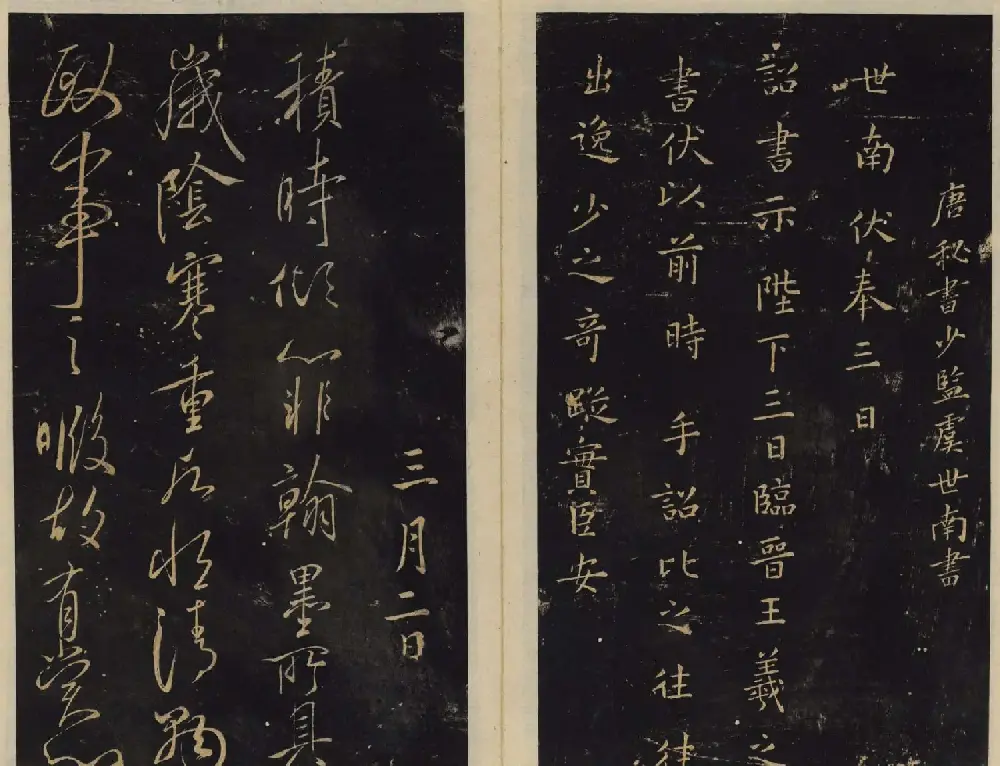 唐秘書少監虞世南書
世南伏奉三日
詔書示陛下三日臨晉王羲之
書伏以前時手詔比之往往
出逸少之奇蹤實臣安
三月二日
積時傾心非翰墨所具
歲陰寒重想清勝
政事之暇故有賞心